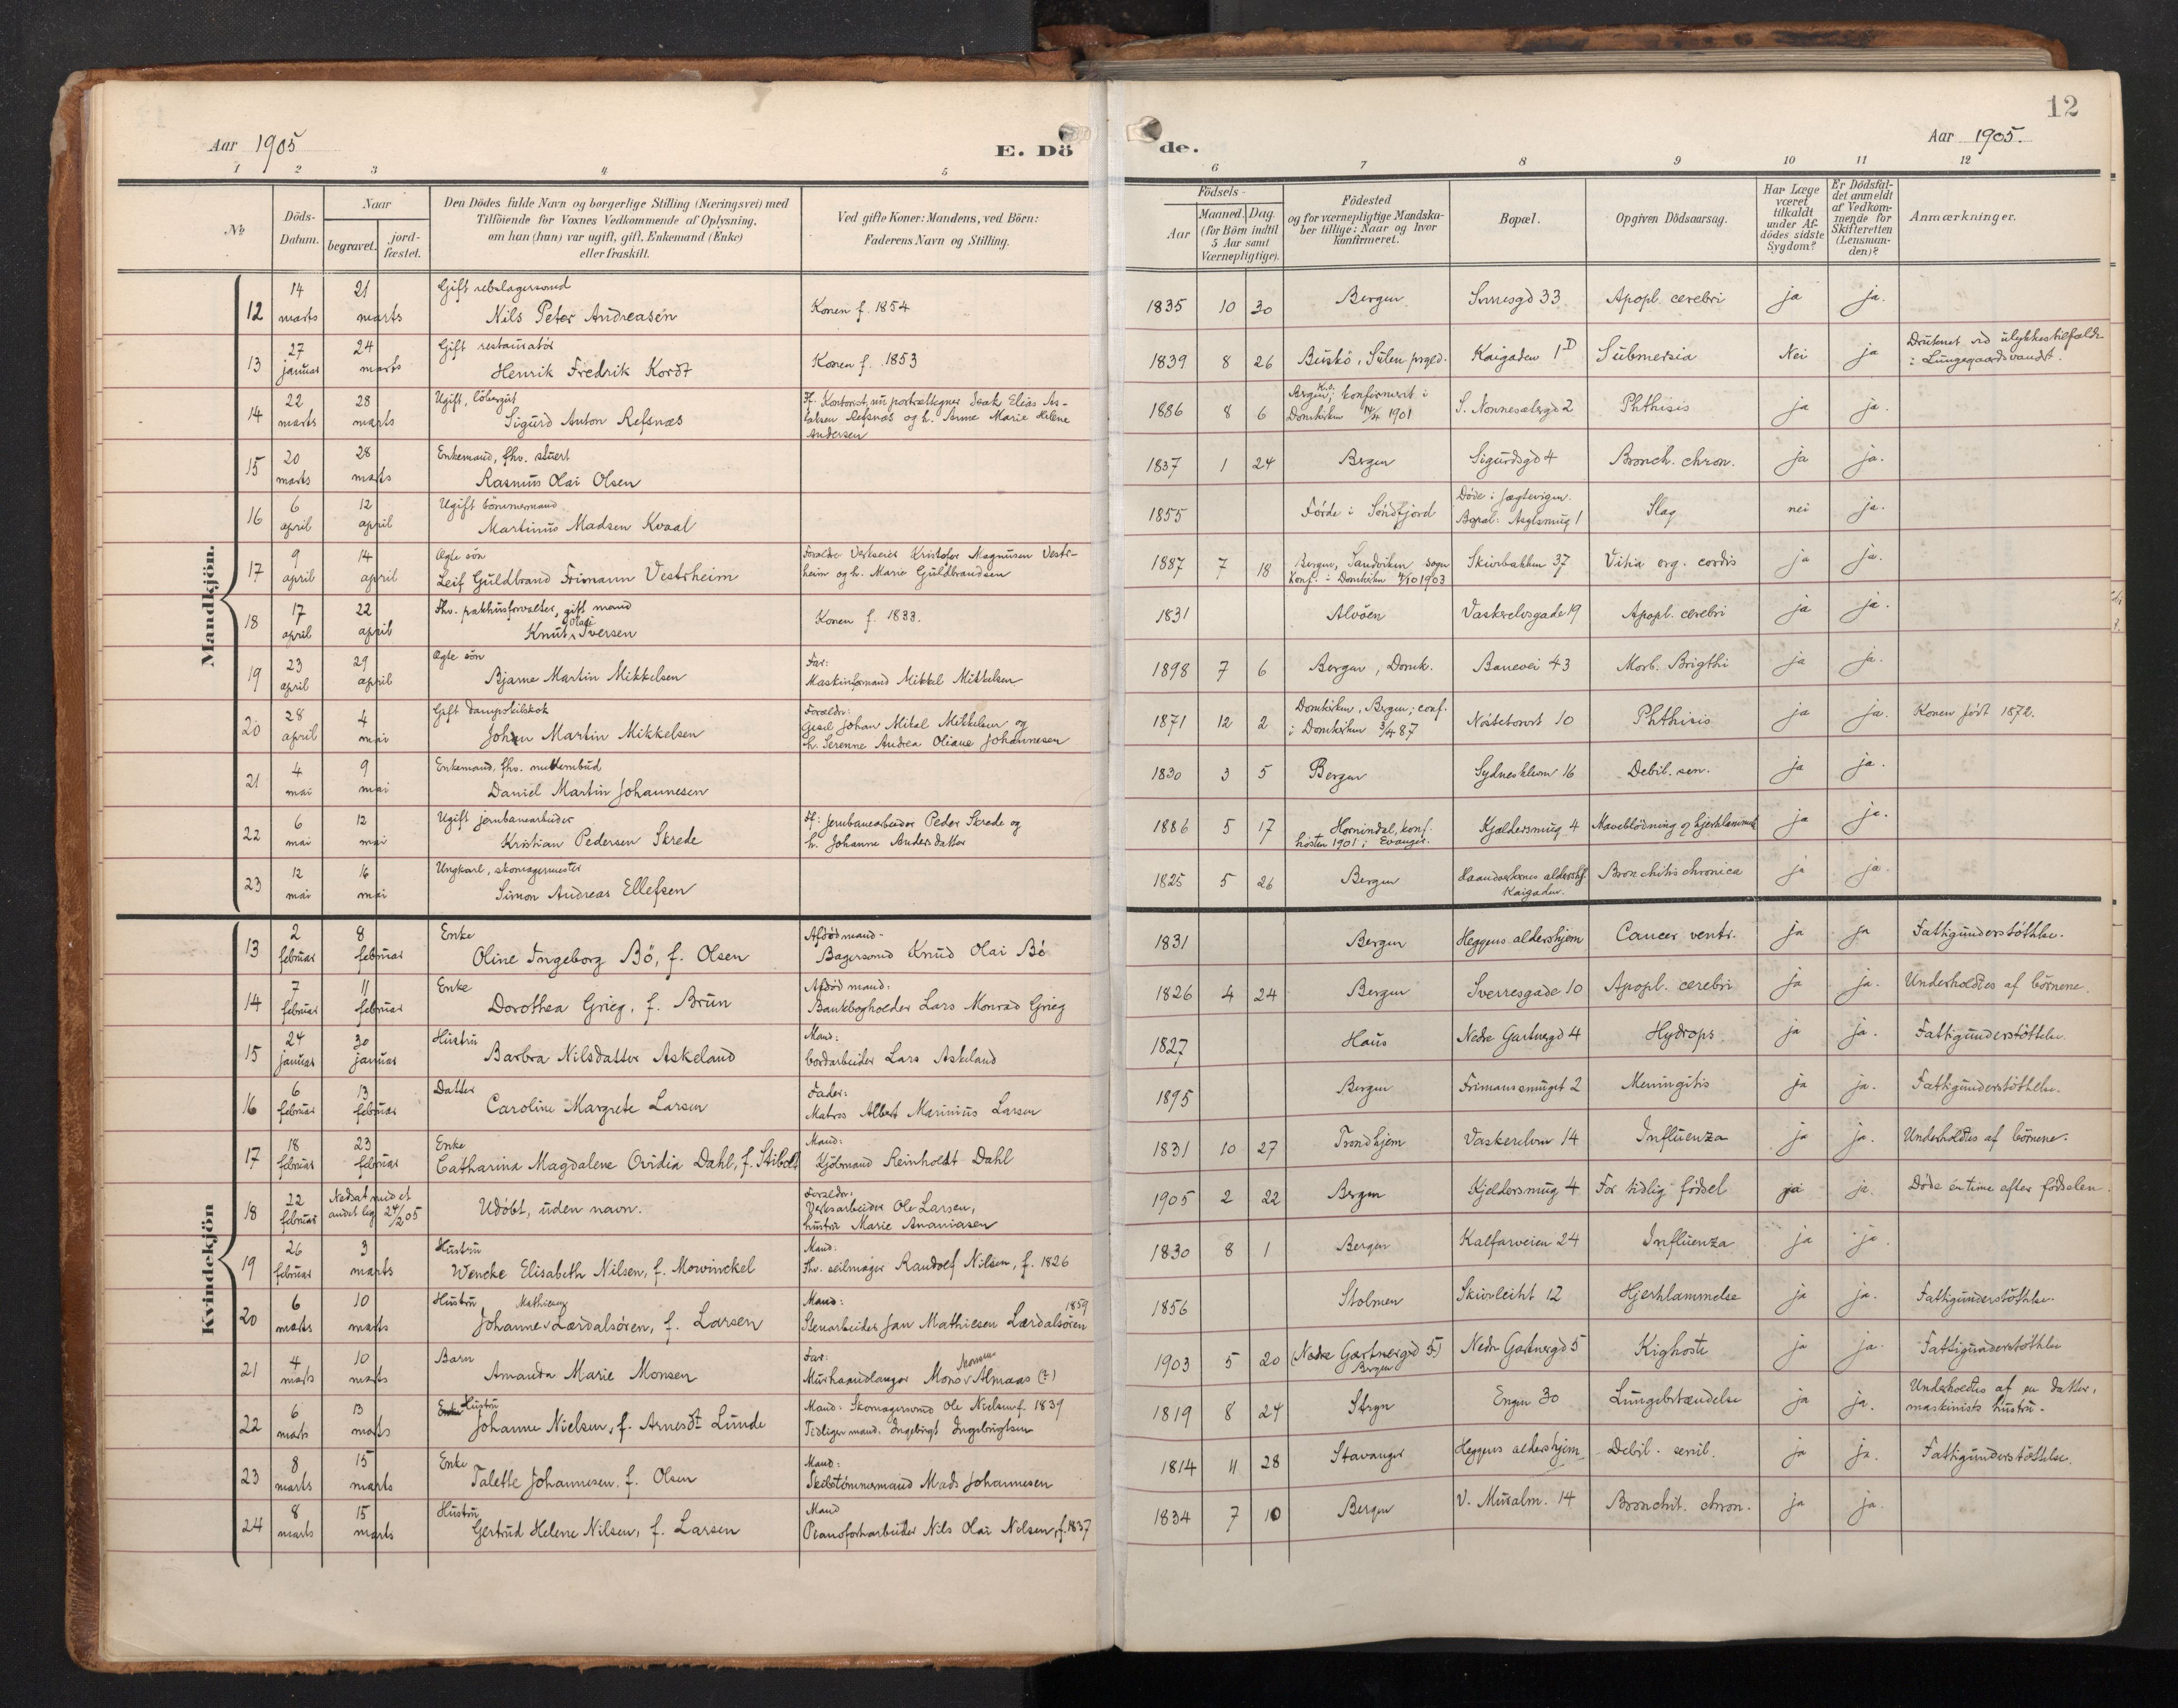 12
Aar 1905
E. Dö
de.
Aar 1905.
1 2 3 4 5
6 7 8 9 10 11 12
No
Döds-
Datum.
Naar
begravet.
jord-
fæstet.
Den Dödes fulde Navn og borgerlige Stilling (Næringsvei) med
Tilföiende for Voxnes Vedkommende af Oplysning,
om han (hun) var ugift, gift, Enkemand (Enke)
eller fraskilt.
Ved gifte Koner: Mandens, ved Börn:
Faderens Navn og Stilling.
Födsels-
Aar
Maaned. Dag.
(for Börn indtil
5 Aar samt
Værnepligtige).
Födested
og for værnepligtige Mandska-
ber tillige: Naar og hvor
konfirmeret.
Bopæl.
Opgiven Dödsaarsag.
Har Læge
været
tilkaldt
under Af-
dödes sidste
Sygdom?
Er Dödsfal-
det anmeldt
af Vedkom-
mende for
Skifteretten
(Lensman-
den)?
Anmærkninger.
Mandkjön.
12 14 marts 21 marts
Gift rebslagersvend
Nils Peter Andreasen
Konen f. 1854
1835 10 30 Bergen Smuesgd 33 Apopl. cerebri ja ja.
13 27 januar 24 marts
Gift restauratör
Henrik Fredrik Kordt
Konen f. 1853
1839 8 26 Buskö, Sulen prgld. Kaigaden 1D Submersia Nei ja
Druknet ved ulykkestilfælde
i Lungegaardsvandet.
14 22 marts 28 marts
Ugift, löbergut
Sigurd Anton Refsnæs
Ff. Kontorist, nu portrættegner Isak Elias As-
laksen Refsnæs og h. Anne Marie Helene
Andersen
1886 8 6
Bergen; konfirmert i
Domkirken 1901
S. Nonnesætergd 2 Phthisis ja ja.
15 20 marts 28 marts
Enkemand, fhv. stuert
Rasmus Olai Olsen
1837 1 24 Bergen Sigurdsgd 4 Bronch. chron. ja ja.
16 6 april 12 april
Ugift tömmermand
Martinus Madsen Kvaal
1855 Förde i Söndfjord
Döde i Jægtevigen.
Bopæl: Asylsmug 1
Slag nei ja.
17 9 april 14 april
Ægte sön
Leif Guldbrand Frimann Vestrheim
Forældre Verkseier Kristofer Magnusen Vestr-
heim og h. Marie Guldbrandsen
1887 7 18
Bergen, Sandviken sogn
Konf. i Domkirken 4/10 1903
Skivebakken 37 Vitia org. cordis ja ja.
18 17 april 22 april
Fhv. pakhusforvalter, gift mand
Knut Olai Iversen
Konen f. 1833.
1831 Alvöen Vaskrelvsgade 19 Apopl. cerebri ja ja.
19 23 april 29 april
Ægte sön
Bjarne Martin Mikkelsen
Far:
Maskinformand Mikkel Mikkelsen
1898 7 6 Bergen, Domk. Banevei 43 Morb. Brigthi ja ja.
20 28 april 4 mai
Gift dampskibskok
Johan Martin Mikkelsen
Forældre:
Gesel Johan Mikal Mikkelsen og
h. Serenne Andrea Oliane Johannesen
1871 12 2
Domkirken, Bergen; conf.
i Domkirken 3/4 87
Nöstetorvet 10 Phthisis ja ja. Konen födt 1872.
21 4 mai 9 mai
Enkemand, fhv.
Daniel Martin Johannesen
1830 3 5 Bergen Sydneskleven 16 Debil. sen. ja ja.
22 6 mai 12 mai
Ugift jernbanearbeider
Kristian Pedersen Skrede
Ff: jernbanearbeider Peder Skrede og
h. Johanne Andersdatter
1886 5 17
Hornindal, konf.
hösten 1901 i Evanger.
Kjældersmug 4 Maveblödning og hjertelammelse ja ja.
23 12 mai 16 mai
Ungkarl, skomagermester
Simon Andreas Ellefsen
1825 5 26 Bergen
Haandverkernes aldershj.
Kaigaden.
Bronchitis chronica ja ja.
Kvindekjön
13 2 februar 8 februar
Enke
Oline Ingeborg Bö, f. Olsen
Afdöd mand-
Bagersvend Knud Olai Bö
1831 Bergen Heggens aldershjem Cancer ventr. ja ja Fattigunderstöttelse.
14 7 februar 11 februar
Enke
Dorothea Grieg, f. Brun
Afdöd mand:
Bankbogholder Lars Monrad Grieg
1826 4 24 Bergen Sverresgade 10 Apopl. cerebri ja ja. Underholdtes af börnene.
15 24 januar 30 januar
Hustru
Barbra Nilsdatter Askeland
Mand:
Jordarbeider Lars Askeland
1827 Haus Nedre Gartnergd 4 Hydrops ja ja. Fattigunderstöttelse.
16 6 februar 13 februar
Datter
Caroline Margrete Larsen
Fader:
Matros Albert Marinius Larsen
1895 Bergen Frimansmuget 2 Meningitis ja ja. Fattigunderstöttelse.
17 18 februar 23 februar
Enke
Catharina Magdalene Ovidia Dahl, f. Stibolt
Mand:
Kjöbmand Reinholdt Dahl
1831 10 27 Trondhjem Vaskerelven 14 Influenza ja ja. Underholdtes af börnene.
18 22 februar
Nedsat med et
andet lig 24/2 05
Udöbt, uden navn.
Forældre:
Verksarbeider Ole Larsen,
hustru Marie Ananiasen
1905 2 22 Bergen Kjeldersmug 4 For tidlig födsel ja ja. Döde en time efter födselen.
19 26 februar 3 marts
Hustru
Wencke Elisabeth Nilsen, f. Mowinckel
Mand:
Fhv. seilmager Randolf Nilsen, f. 1826
1830 8 1 Bergen Kalfarveien 24 Influenza ja ja.
20 6 marts 10 marts
Hustru Mathiesen
Johanne Lærdalsören, f. Larsen
Mand: 1859
Stenarbeider Jan Mathiesen Lærdalsören
1856 Stolmen Skivebeiht 12 Hjertelammelse ja ja. Fattigunderstöttelse.
21 4 marts 10 marts
Barn
Amanda Marie Monsen
Far: Monsen
Murhaandlanger Mons Almaas (?)
1903 5 20
(Nedre Gartnergd 5)
Bergen
Nedre Gartnergd 5 Kighoste ja ja. Fattigunderstöttelse
22 6 marts 13 marts
Enke Hustru
Johanne Nielsen, f. Arnesdt Lunde
Mand: Skomagersvend Ole Nielsen f. 1839
Tidligere mand: Ingebrigt Ingebrigtsen
1819 8 24 Stryn Engen 30 Lungebetændelse ja ja.
Underholdtes af en datter,
maskinists hustru.
23 8 marts 15 marts
Enke
Talette Johannesen, f. Olsen
Mand:
Skibstömmermand Mads Johannesen
1814 11 28 Stavanger Heggens aldershjem Debil. senil. ja ja. Fattigunderstöttelse.
24 8 marts 15 marts
Hustru
Gertrud Helene Nilsen, f. Larsen
Mand
Pianofortearbeider Nils Olai Nilsen, f. 1837
1834 7 10 Bergen V. Muralm. 14 Bronchit. chron. ja ja.